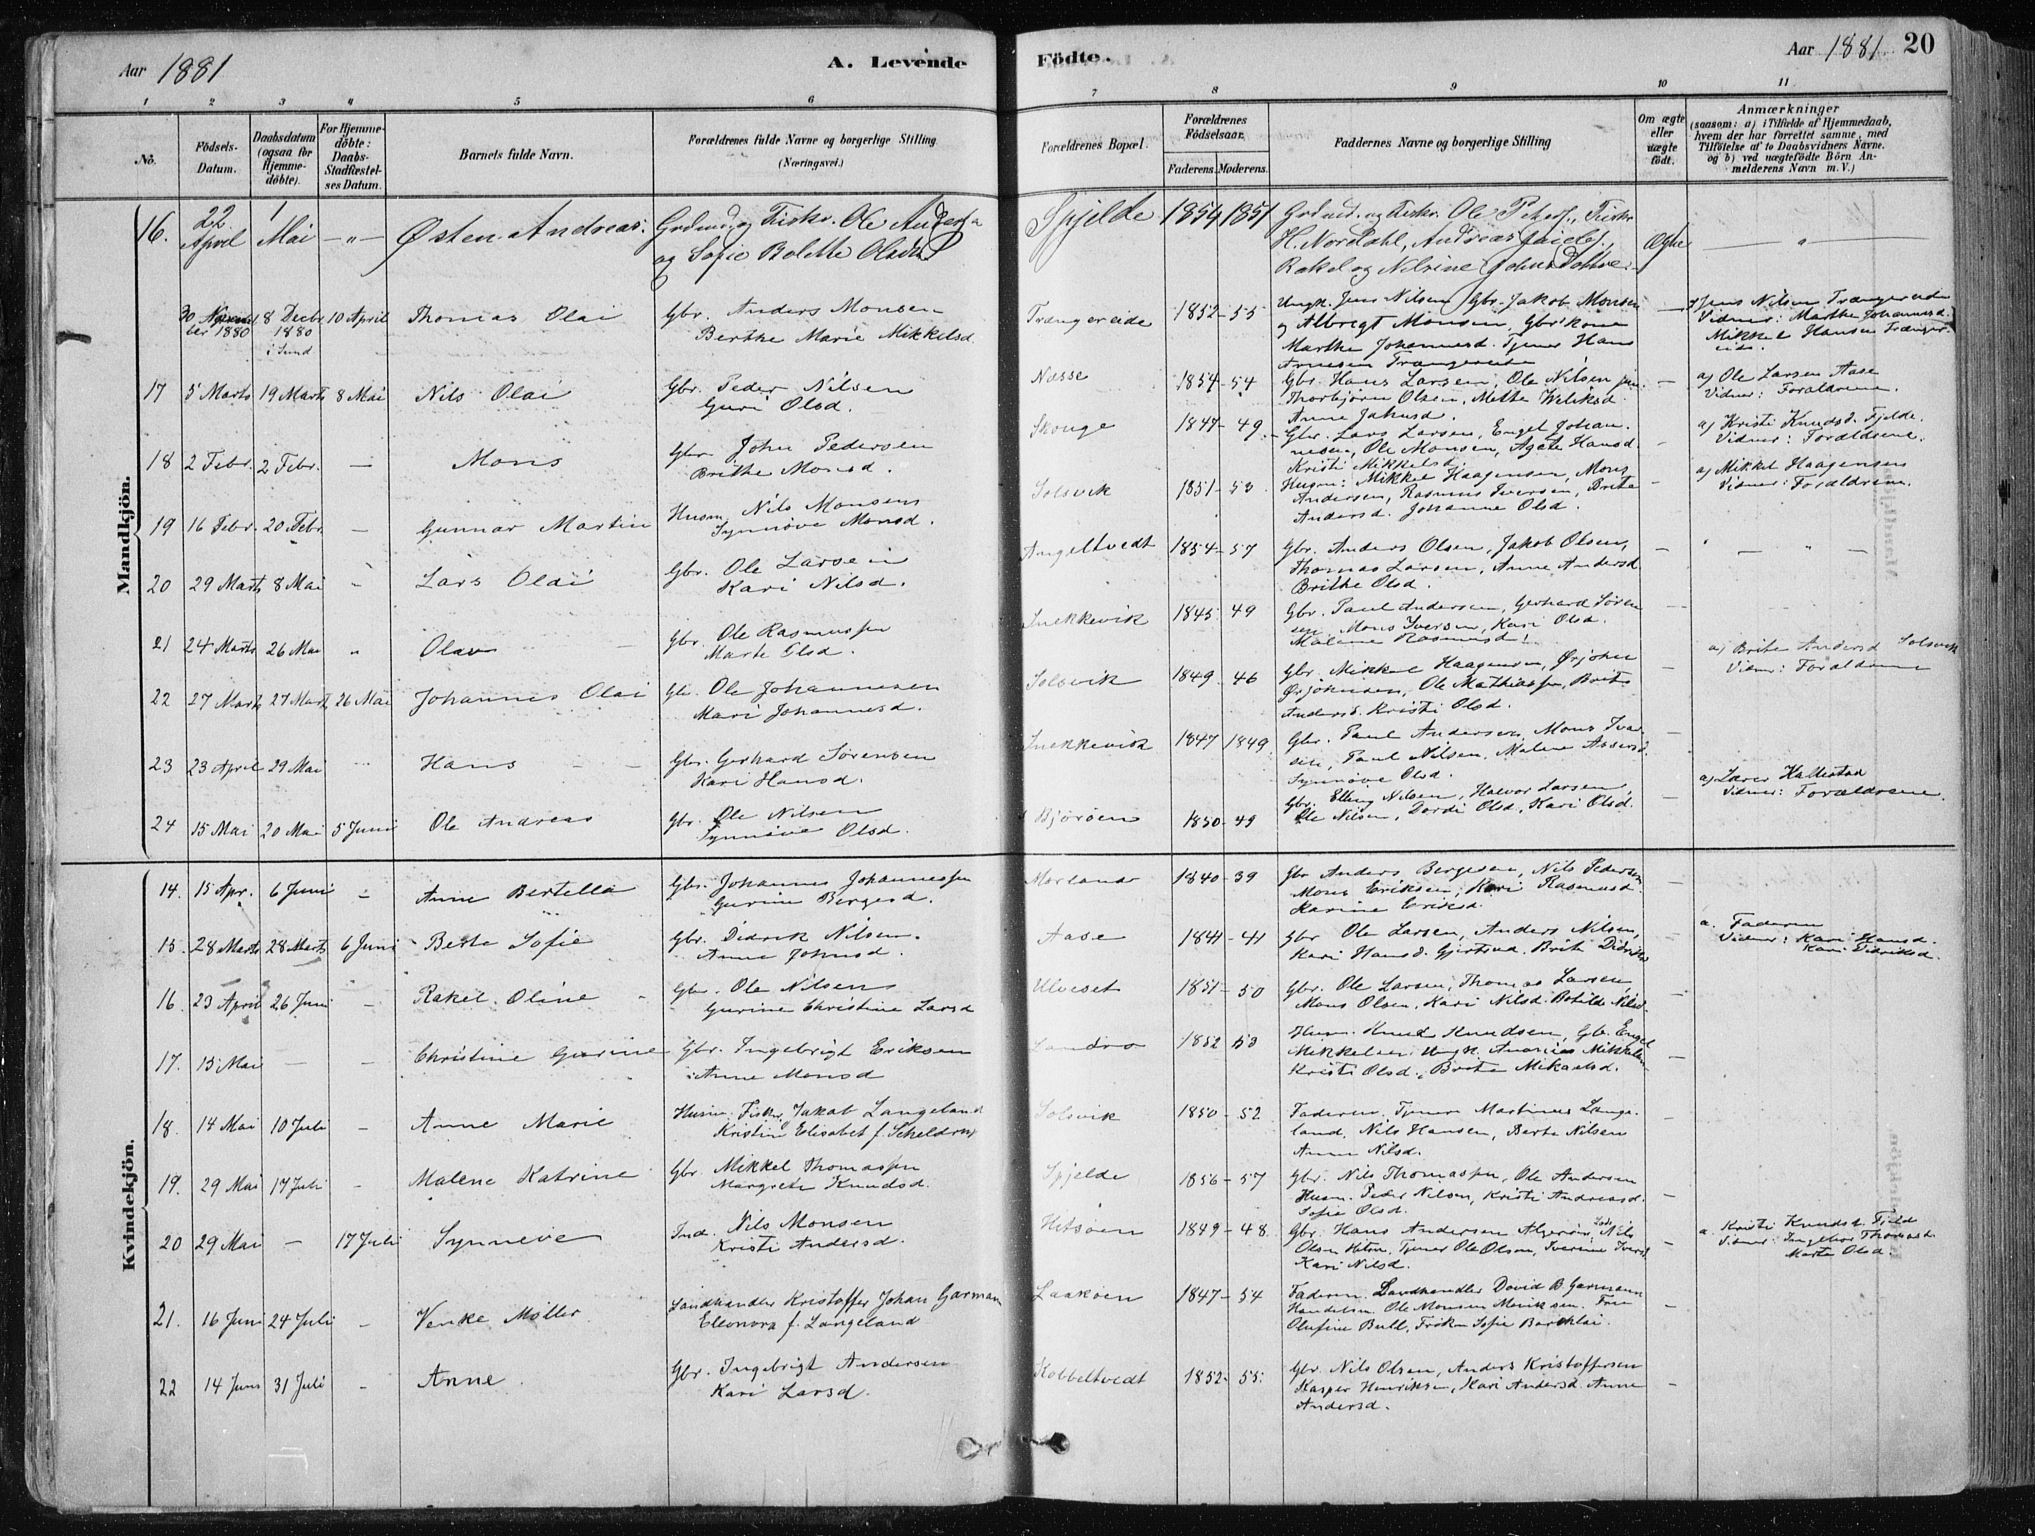 Aar 1881
A. Levende
Födte.
Aar 1881
20
1 2 3 4 5 6 7 8 9 10 11
No.
Födsels-Datum.
Daabsdatum (ogsaa for Hjemme-døbte).
For Hjemme-döbte: Daabs-Stadfæstel-ses Datum.
Barnets fulde Navn.
Forældrenes fulde Navne og borgerlige Stilling (Næringsvei.)
Forældrenes Bopæl.
Forældrenes Födselsaar.
Faderens. Moderens.
Faddernes Navne og borgerlige Stilling
Om ægte eller uægte födt.
Anmærkninger
(saasom: a) i Tilfælde af Hjemmedaab, hvem der har forrettet samme, med Tilföielse af to Daabsvidners Navne. og b) ved uægtefödte Börn An-melderens Navn m. V.)
Mandkjön.
16. 22 April 1 Mai — " — Østen Andreas. Grdmd. og Fiskr. Ole Anders
og Sofie Bolette Olsdtr Spjelde 1854 1851 Grdmd. og Fiskr. Ole Peters., Fiskr
H. Nordahl, Andreas
Rakel og Nilsine Johnsdottre. Ægte — " —
30 Novem ber 1880 8 Decbr 1880 i Sund 10 April Thomas Olai Gbr. Anders Monsen
Berthe Marie Mikkelsd. Trængereide 1852-55 Ungk. Jens Nilsen Gbr. Jakob Monsen
og Albregt Monsen, Gbr kone
Marthe Johannesd. Tjener Hans
Arnesen Trængereide — Jens Nilsen Trængereide
Vidner: Marthe Johannesd.
Mikkel Hansen Trænger-
eide.
17 5 Marts 19 Marts 8 Mai Nils Olai Gbr. Peder Nilsen
Guri Olsd. Næsse 1854-54 Gbr. Hans Larsen, Ole Nilsen jun.
Thorbjörn Olsen, Mette Wiliksd.
Anne Jakobsd. — a) Ole Larsen Aase
Vidner: Forældrene.
18 2 Febr. 2 Febr. — Mons Gbr. John Pedersen
Brithe Monsd. Skouge 1847-49 Gbr. Lars Larsen, Engel Johan-
nesen, Ole Monsen, Agate Hansd.
Kristi Mikkelsd. — a) Kristi Knudsd. Fjelde.
Vidner: Forældrene.
19 16 Febr. 20 Febr. — Gunnar Martin Husm. Nils Monsen
Synnøve Monsd. Solsvik 1851-53 Husm: Mikkel Haagensen, Mons
Andersen, Rasmus Iversen, Brite
Andersd. Johanne Olsd. — a) Mikkel Haagensen
Vidner: Forældrene.
20 29 Marts 8 Mai " Lars Olai Gbr. Ole Larsen
Kari Nilsd. Angeltvedt 1854-57 Gbr. Anders Olsen, Jakob Olsen,
Thomas Larsen, Anne Andersd.
Brithe Olsd. — — " —
21 24 Marts 26 Mai " Olav Gbr. Ole Rasmussen
Marte Olsd. Snekkevik 1845 49 Gbr. Paul Andersen, Gerhard Søren
sen, Mons Iversen, Kari Olsd.
Malene Rasmusd. —
22 27 Marts 27 Marts 26 Mai Johannes Olai Gbr. Ole Johannesen
Mari Johannesd. Solsvik 1849-46 Gbr. Mikkel Haagensen, Ørjohn
Ørjohnsen, Ole Mathiassen, Brite
Andersd. Kristi Olsd. — a) Brite Andersd Solsvik
Vidner: Forældrene
23 23 April 29 Mai Hans Gbr. Gerhard Sørensen
Kari Hansd. Snekkevik 1847 1849 Gbr. Paul Andersen, Mons Iver-
sen, Paul Nilsen, Malene
Synnøve Olsd. —
24 15 Mai 20 Mai 5 Juni Ole Andreas Gbr. Ole Nilsen
Synnøve Olsd. Bjørøen 1850-49 Gbr. Elling Nilsen, Halvor Larsen,
Ole Nilsen, Dordi Olsd, Kari Olsd. — a) Lærer Hallestad
Vidner: Forældrene.
Kvindekjön.
14. 15 Apr. 6 Juni - Anne Bertella Gbr. Johannes Johannessen
Gurine Bergesd. Morland 1840-39 Gbr Anders Bergesen, Nils Pedersen
Mons Eriksen, Kari Rasmusd
Karine Eriksd. —
15. 28 Marts 28 Marts 6 Juni Berte Sofie Gbr. Didrik Nilsen.
Anne Johnsd. Aase 1841-41 Gbr Ole Larsen, Anders Nilsen,
Kari Hansd. Gjertrud. Brite Didriksd — a. Faderen
Vidner: Kari Hansd.
Kari Didriksd.
16. 23 April 26 Juni - Rakel Oline Gbr. Ole Nilsen
Gurine Christine Larsd Ulveset 1851-50 Gbr. Ole Larsen, Thomas Larsen,
Mons Olsen, Kari Nilsd. Botilde Nilsd. —
17. 15 Mai — - Christine Gurine Gbr. Ingebrigt Eriksen
Anne Monsd Landro 1852 53 Husm. Knud Knudsen, Gbr. Engel
Mikkelsen, Ungk. Andreas Mikkelsen
Kristi Olsd., Brite Mikaelsd. —
18. 14 Mai 10 Juli - Anne Marie Husm. Fisker Jakob Langeland
Kristin Elisabet f. Scheldrup Solsvik 1850-52 Faderen. Tjener Martinus Lange-
land, Nils Hansen, Berte Nilsen
Anne Nilsd.
19. 29 Mai 17 Juli - Malene Katrine Gbr. Mikkel Thomassen
Margrete Knudsd. Spjelde 1856-57 Gbr. Nils Thomassen, Ole Andersen
Husm. Peder Nilsen, Kristi Andreasd.
Sofie Olsd. —
20 29 Mai — 17 Juli Synneve Ind. Nils Monsen
Kristi Andersd. Hitsøen 1849-48 Gbr. Hans Andersen Algerøen, Nils
Olsen Hitsøen, Tjener Ole Olsen, Iverine Iversd
Kari Nilsd. — a. Kristi Knudsd. Fjeld
Vidner: Ingebor Thomasd
Marte Olsd.
21. 16 Juni 24 Juli - Venke Møller Landhandler Kristoffer Johan Garman
Eleonora f. Langeland Laakøen 1847-54 Faderen. Landhandler David B. Garmann
Handelsm. Ole Monsen Meriksen. Fru
Olufine Bull, Frøken Sofie Barchlai. —
22 14 Juni 31 Juli - Anne Gbr. Ingebrigt Andersen
Kari Larsd. Kobbeltvedt 1852-55 Gbr. Nils Olsen, Anders Kristoffersen
Kasper Henriksen, Kari Andersd. Anne
Andersd. —